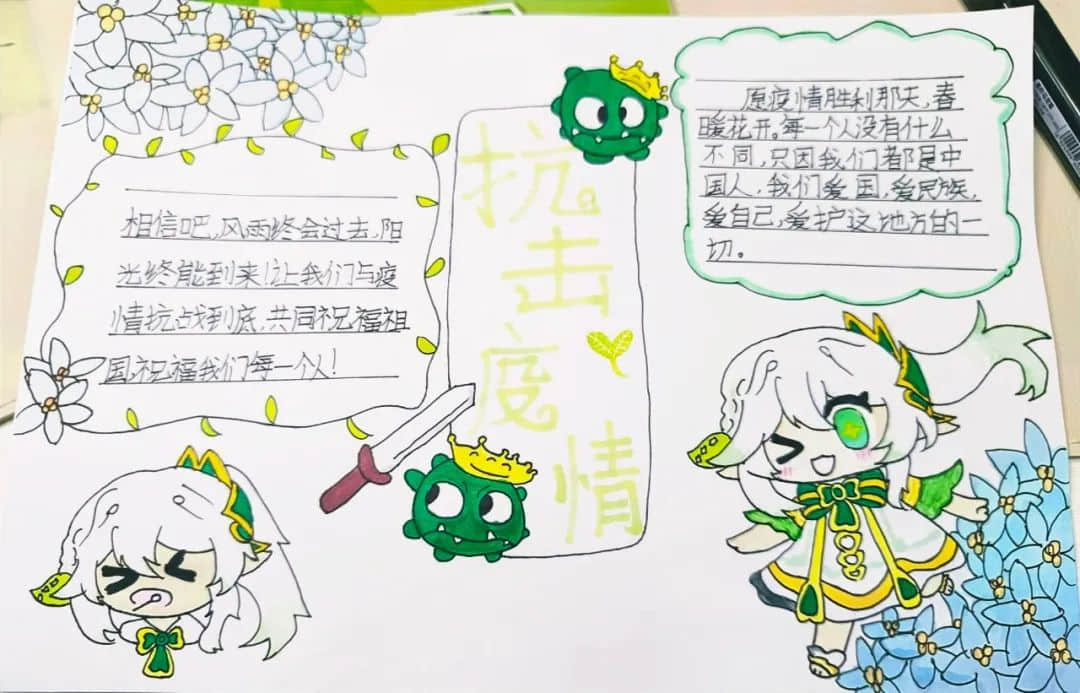 抗击疫情
相信吧,风雨终会过去,阳
光终能到来!让我们与疫
情抗战到底,共同祝福祖
国,祝福我们每一个人!
愿疫情胜利那天,春
暖花开。每一个人没有什么
不同,只因我们都是中
国人,我们爱国,爱民族,
爱自己,爱护这地方的一
切。